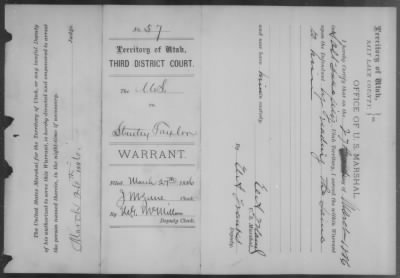 The United States Marshal for the Territory of Utah, or any lawful Deputy
of his authorized to serve this Warrant, is hereby directed and empowered to arrest
the person named therein, in the night-time if necessary.
March 26th 1886
No. 57
Territory of Utah,
THIRD DISTRICT COURT.
The U.S.
vs
Stanley Taylor
WARRANT.
Filed March 27th 1886
Clerk
By H.G. McMillan
Deputy Clerk.
Territory of Utah,
SALT LAKE COUNTY.
ss
OFFICE OF U. S. MARSHAL
I hereby Certify that on the 27 day of March 1886
at Salt Lake City, Utah Territory, I served the within Warrant
upon the Defendant by reading the same
to him
and now have him in custody.
E A Ireland
U. S. Marshal
By
Deputy.